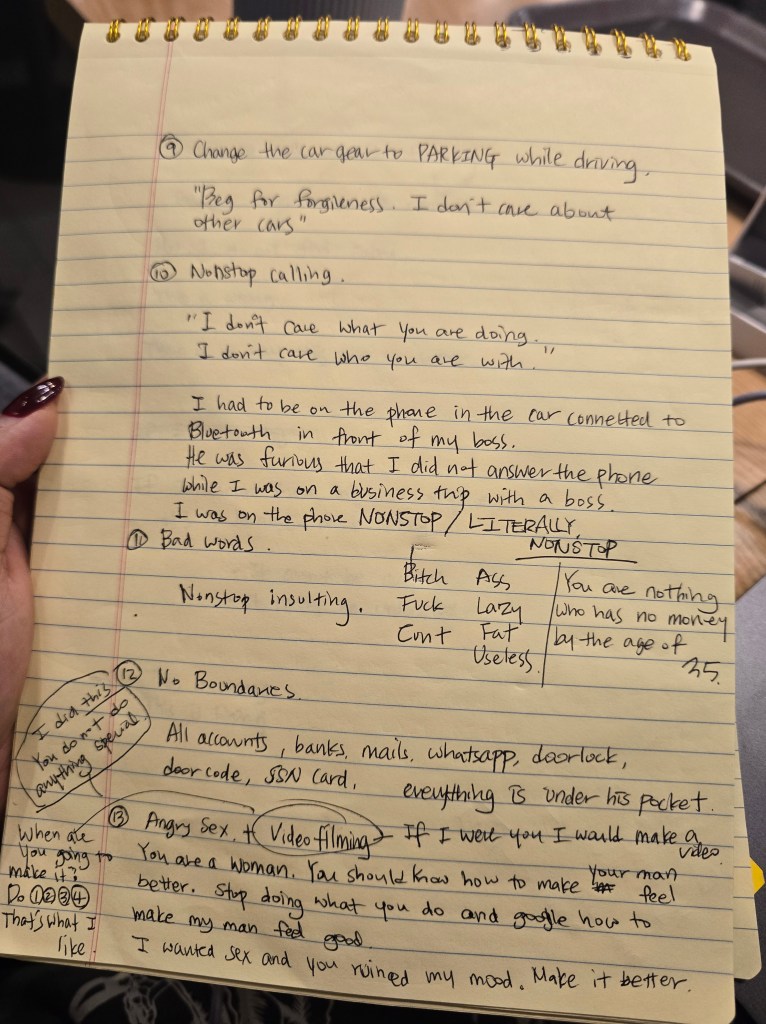 ⑨ Change the car gear to PARKING while driving.
"Beg for forgiveness. I don't care about
other cars"
⑩ Nonstop calling.
"I don't care what you are doing.
I don't care who you are with."
I had to be on the phone in the car connected to
Bluetooth in front of my boss.
He was furious that I did not answer the phone
while I was on a business trip with a boss.
I was on the phone NONSTOP / LITERALLY,
NONSTOP
⑪ Bad words.
Nonstop insulting.
Bitch Ass
Fuck Lazy
Cunt Fat
Useless.
You are nothing
who has no money
by the age of
35.
⑫ No Boundaries.
I did this
You do not do
anything special.
All accounts, banks, mails, whatsapp, doorlock,
door code, SSN card, everything is under his pocket.
⑬ Angry Sex. + Video filming - If I were you I would make a
video.
You are a woman. You should know how to make your man
feel
better. Stop doing what you do and google how to
make my man feel good.
I wanted sex and you ruined my mood. Make it better.
When are
you going to
make it?
Do ①②③④
That's what I
like.